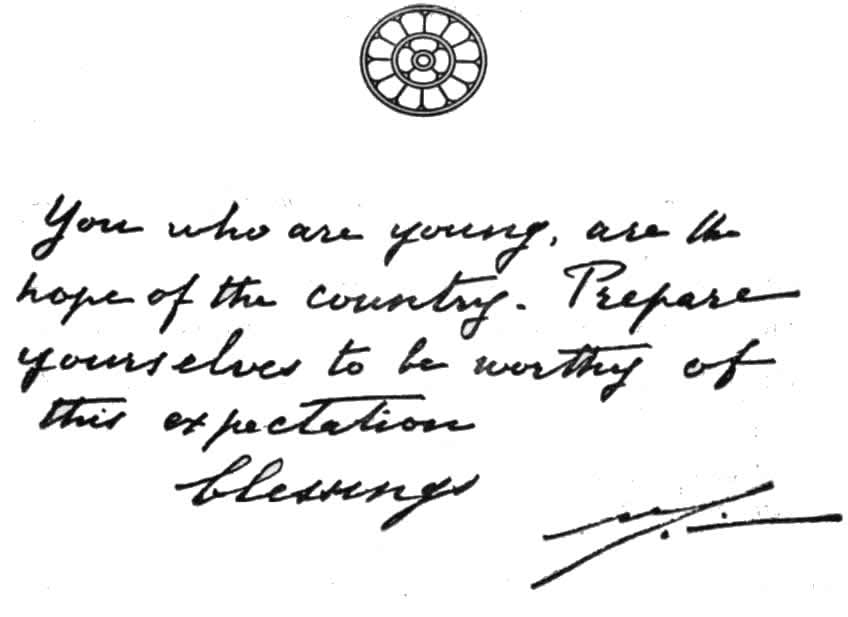 You who are young, are the
hope of the country. Prepare
yourselves to be worthy of
this expectation
blessings